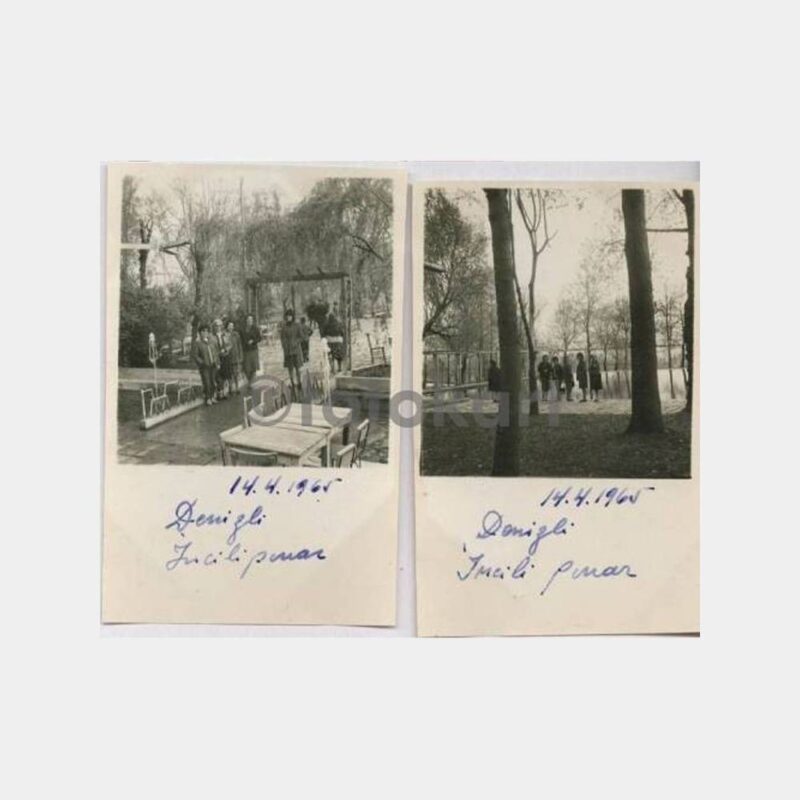 ©fotokart
14.4.1965
Denizli
İncilipınar
14.4.1965
Denizli
İncili pınar